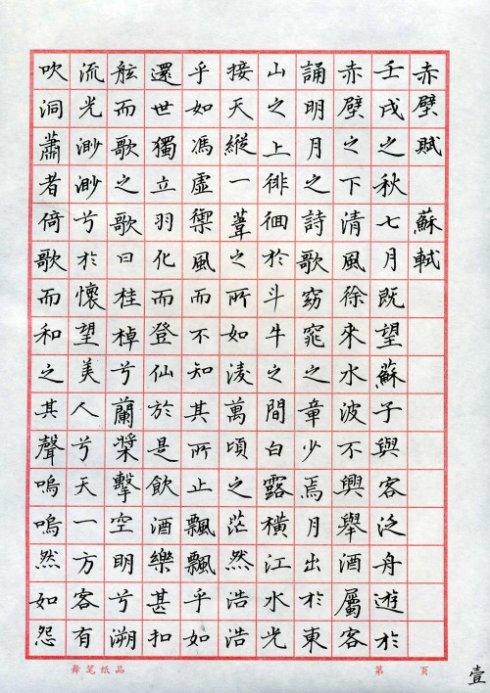 赤壁賦 蘇軾
壬戌之秋七月既望蘇子與客泛舟遊於
赤壁之下清風徐來水波不興舉酒屬客
誦明月之詩歌窈窕之章少焉月出於東
山之上徘徊於斗牛之間白露橫江水光
接天縱一葦之所如淩萬頃之茫然浩浩
乎如馮虛禦風而不知其所止飄飄乎如
還世獨立羽化而登仙於是飲酒樂甚扣
舷而歌之歌曰桂棹兮蘭槳擊空明兮溯
流光渺渺兮於懷望美人兮天一方客有
吹洞蕭者倚歌而和之其聲嗚嗚然如怨
笔纸品
第 页
壹